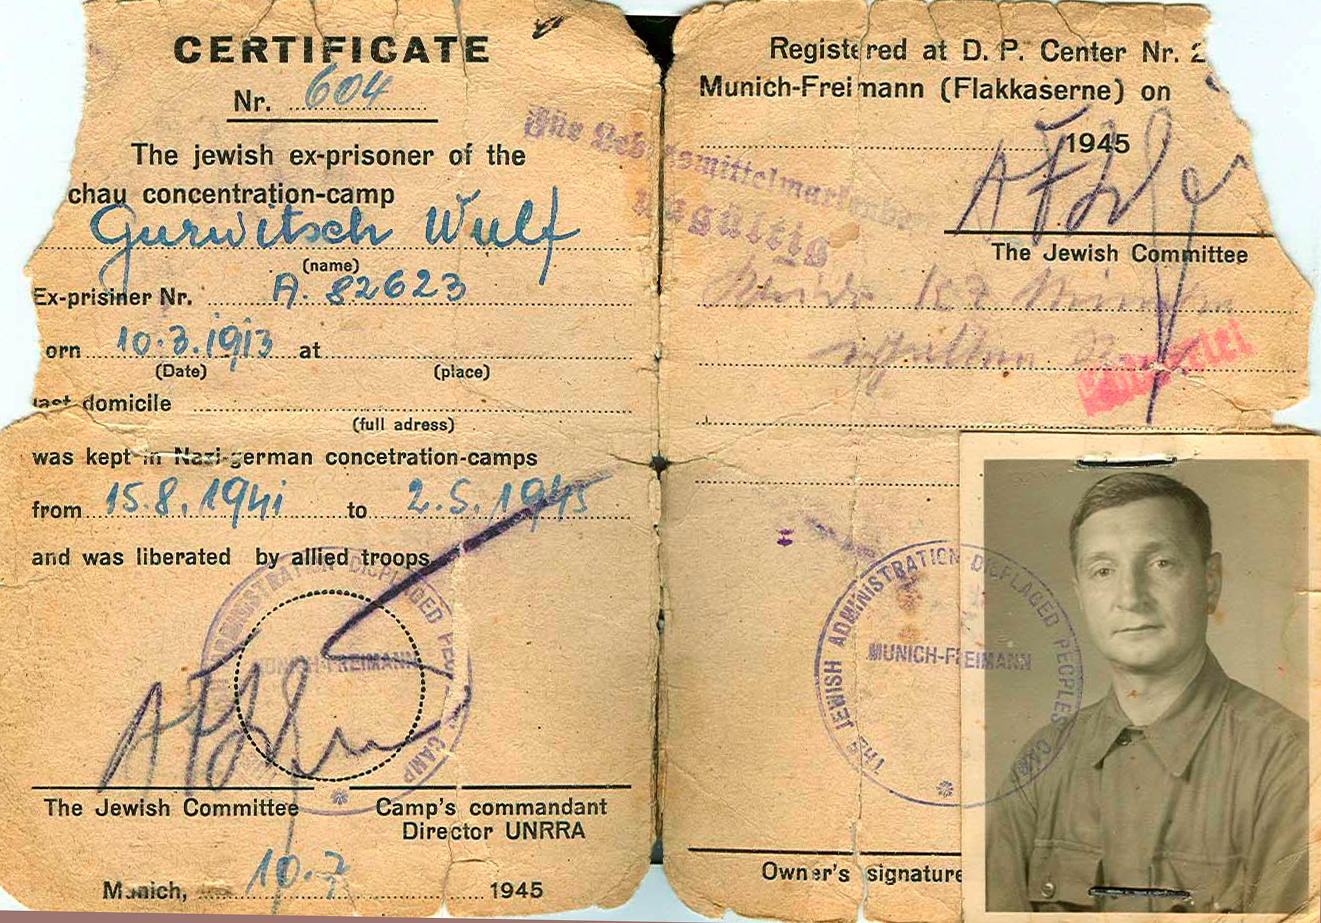 CERTIFICATE
Nr. 604
The jewish ex-prisoner of the
chau concentration-camp
Gurwitsch Wulf
(name)
Ex-prisiner Nr. A. 82623
orn 10.3.1913 at
(Date) (place)
last domicile
(full adress)
was kept in Nazi-german concetration-camps
from 15.8.1941 to 2.5.1945
and was liberated by allied troops
ADMINISTRATION DISPLACED PEOPLES CAMP
MUNICH-FREIMANN
The Jewish Committee
Camp's commandant
Director UNRRA
Munich, 10.7 1945
Registered at D. P. Center Nr. 2
Munich-Freimann (Flakkaserne) on
1945
The Jewish Committee
Für Lebensmittelmarken
ungültig
THE JEWISH ADMINISTRATION DISPLACED PEOPLES CAMP
MUNICH-FREIMANN
Owner's signature